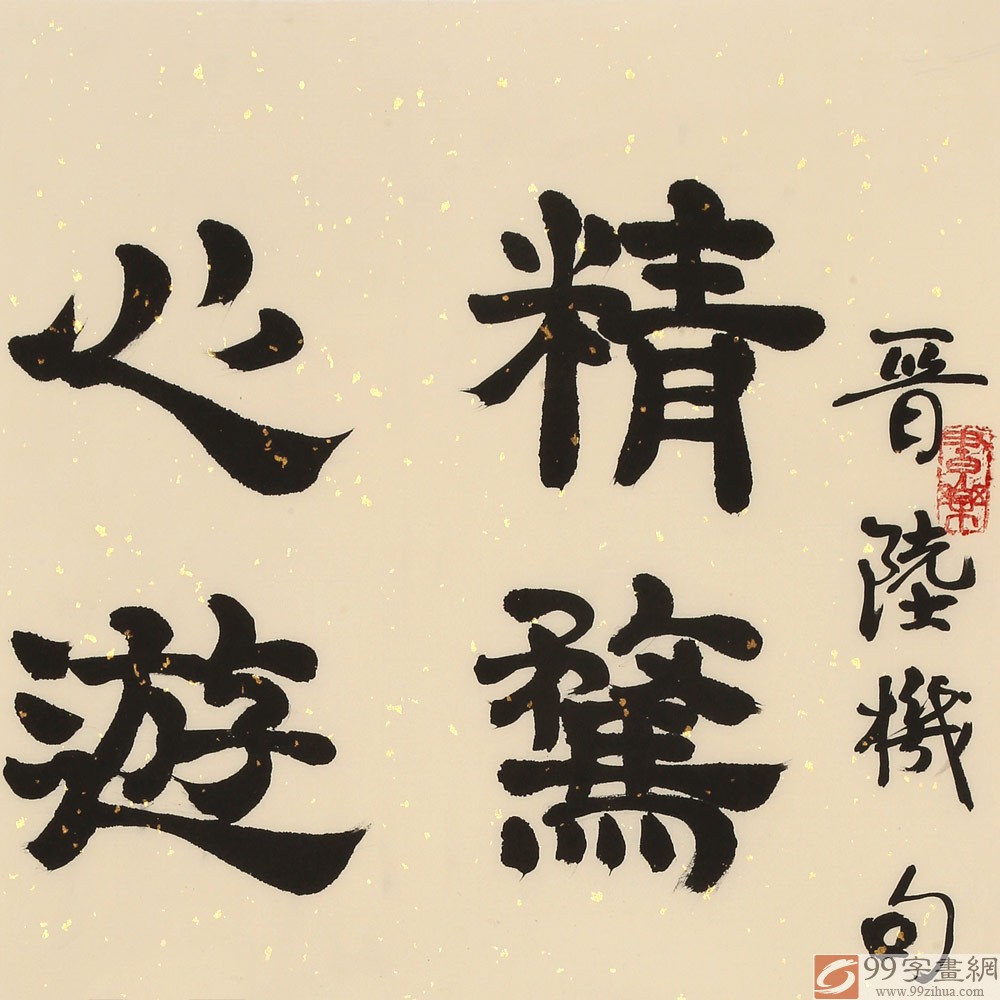 晋陸機句
精騖
心遊
99字畫網
www.99zihua.com